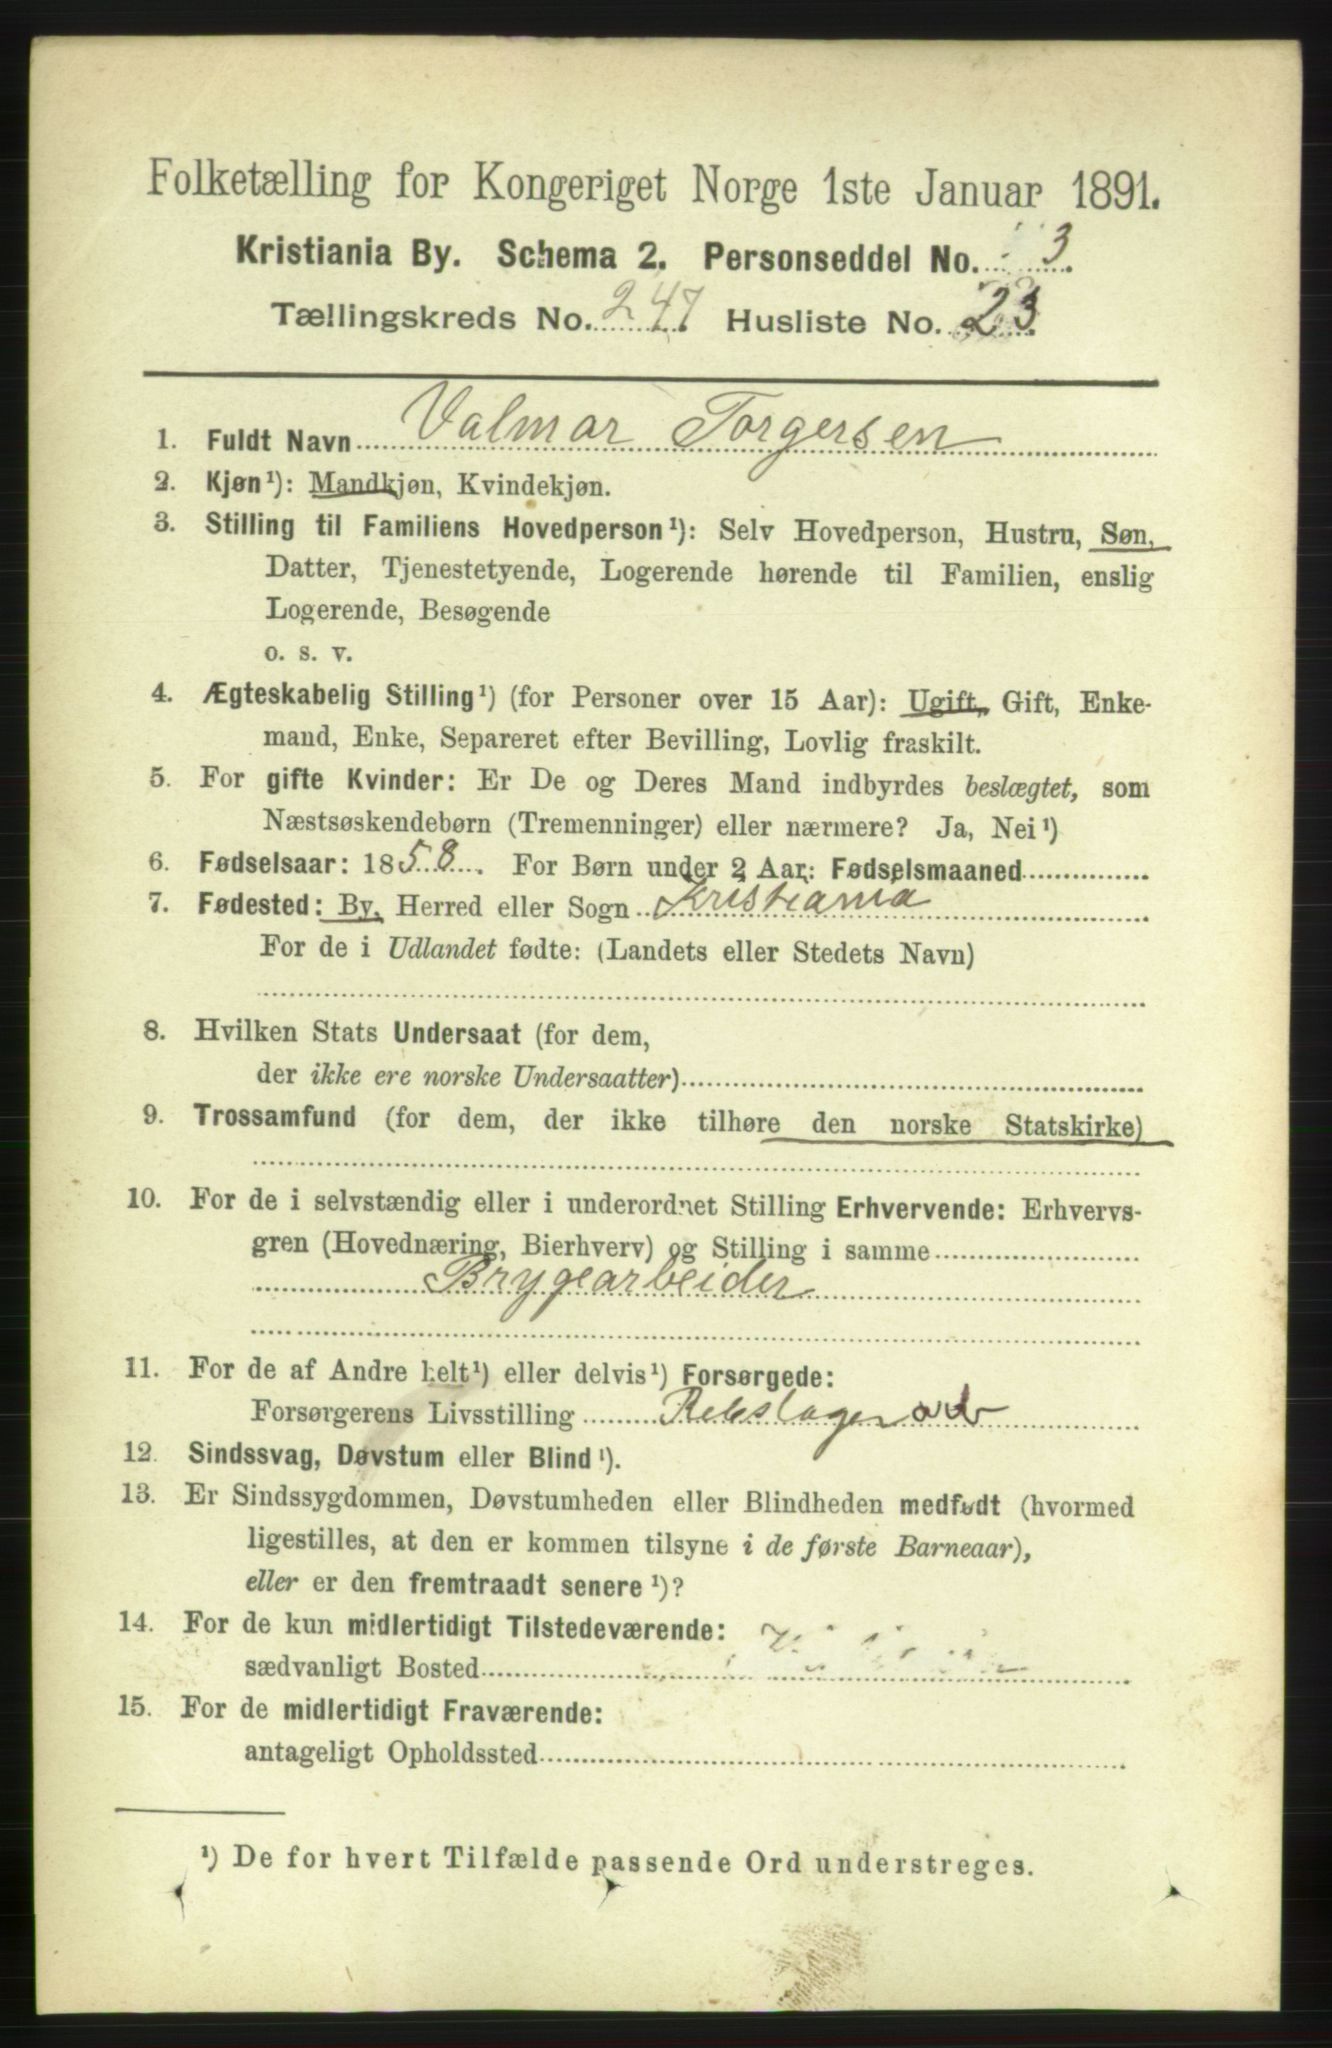 Folketælling for Kongeriget Norge 1ste Januar 1891.
Kristiania By. Schema 2. Personseddel No. 3
Tællingskreds No. 247 Husliste No. 23
1. Fuldt Navn Valmar Torgersen
2. Kjøn¹): Mandkjøn, Kvindekjøn.
3. Stilling til Familiens Hovedperson¹): Selv Hovedperson, Hustru, Søn,
Datter, Tjenestetyende, Logerende hørende til Familien, enslig
Logerende, Besøgende
o. s. v.
4. Ægteskabelig Stilling¹) (for Personer over 15 Aar): Ugift, Gift, Enke-
mand, Enke, Separeret efter Bevilling, Lovlig fraskilt.
5. For gifte Kvinder: Er De og Deres Mand indbyrdes beslægtet, som
Næstsøskendebørn (Tremenninger) eller nærmere? Ja, Nei¹)
6. Fødselsaar: 1858. For Børn under 2 Aar: Fødselsmaaned
7. Fødested: By, Herred eller Sogn Kristiania
For de i Udlandet fødte: (Landets eller Stedets Navn)
8. Hvilken Stats Undersaat (for dem,
der ikke ere norske Undersaatter)
9. Trossamfund (for dem, der ikke tilhøre den norske Statskirke)
10. For de i selvstændig eller i underordnet Stilling Erhvervende: Erhvervs-
gren (Hovednæring, Bierhverv) og Stilling i samme
Brygearbeider
11. For de af Andre helt¹) eller delvis¹) Forsørgede:
Forsørgerens Livsstilling Rebslager
12. Sindssvag, Døvstum eller Blind¹).
13. Er Sindssygdommen, Døvstumheden eller Blindheden medfødt (hvormed
ligestilles, at den er kommen tilsyne i de første Barneaar),
eller er den fremtraadt senere¹)?
14. For de kun midlertidigt Tilstedeværende:
sædvanligt Bosted
15. For de midlertidigt Fraværende:
antageligt Opholdssted
¹) De for hvert Tilfælde passende Ord understreges.